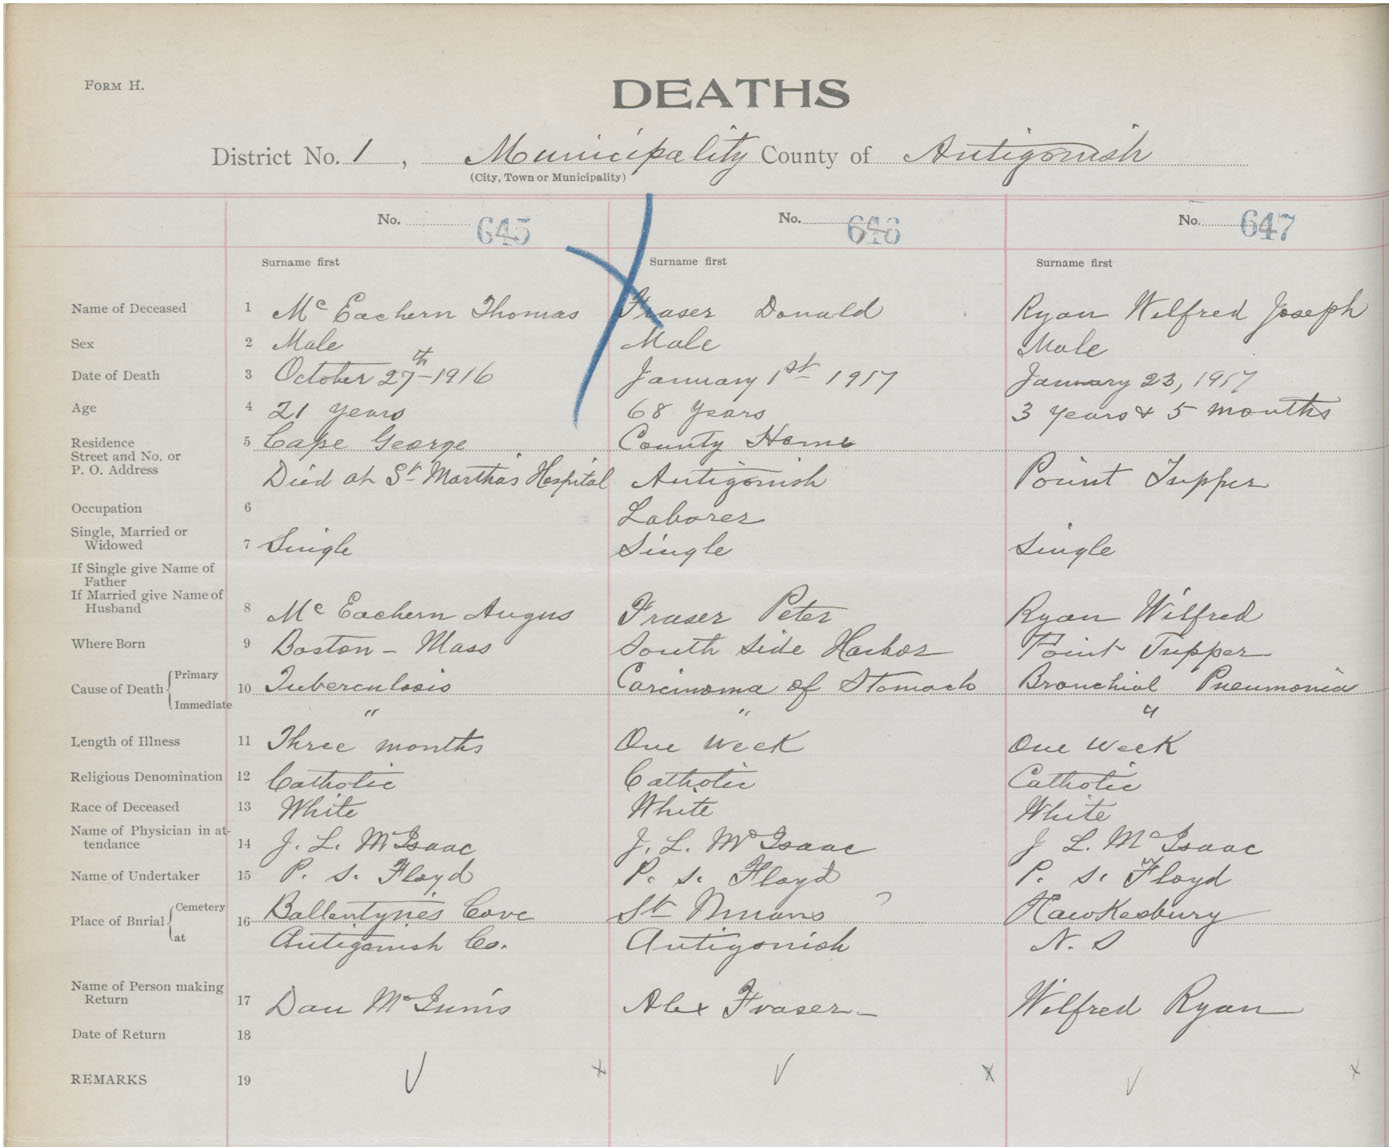 FORM H.
DEATHS
District No. 1, Municipality County of Antigonish
(City, Town or Municipality)
No. 645 No. 646 No. 647
Surname first Surname first Surname first
Name of Deceased 1 Mc Eachern Thomas Fraser Donald Ryan Wilfred Joseph
Sex 2 Male Male Male
Date of Death 3 October 27th-1916 January 1st 1917 January 23, 1917
Age 4 21 years 68 years 3 years & 5 months
Residence 5 Cape George County Home
Street and No. or
P. O. Address Died at St Martha's Hospital Antigonish Point Tupper
Occupation 6 Laborer
Single, Married or
Widowed 7 Single Single Single
If Single give Name of
Father
If Married give Name of
Husband 8 Mc Eachern Angus Fraser Peter Ryan Wilfred
Where Born 9 Boston - Mass South Side Harbor Point Tupper
Cause of Death Primary 10 Tuberculosis Carcinoma of Stomach Bronchial Pneumonia
Immediate " " "
Length of Illness 11 Three months One Week One Week
Religious Denomination 12 Catholic Catholic Catholic
Race of Deceased 13 White White White
Name of Physician in at-
tendance 14 J. L. McIsaac J. L. McIsaac J L. McIsaac
Name of Undertaker 15 P. S. Floyd P. S. Floyd P. S. Floyd
Place of Burial Cemetery 16 Ballentyne's Cove St ? Hawkesbury
at Antigonish Co. Antigonish N. S
Name of Person making
Return 17 Dan Alex Fraser Wilfred Ryan
Date of Return 18
REMARKS 19